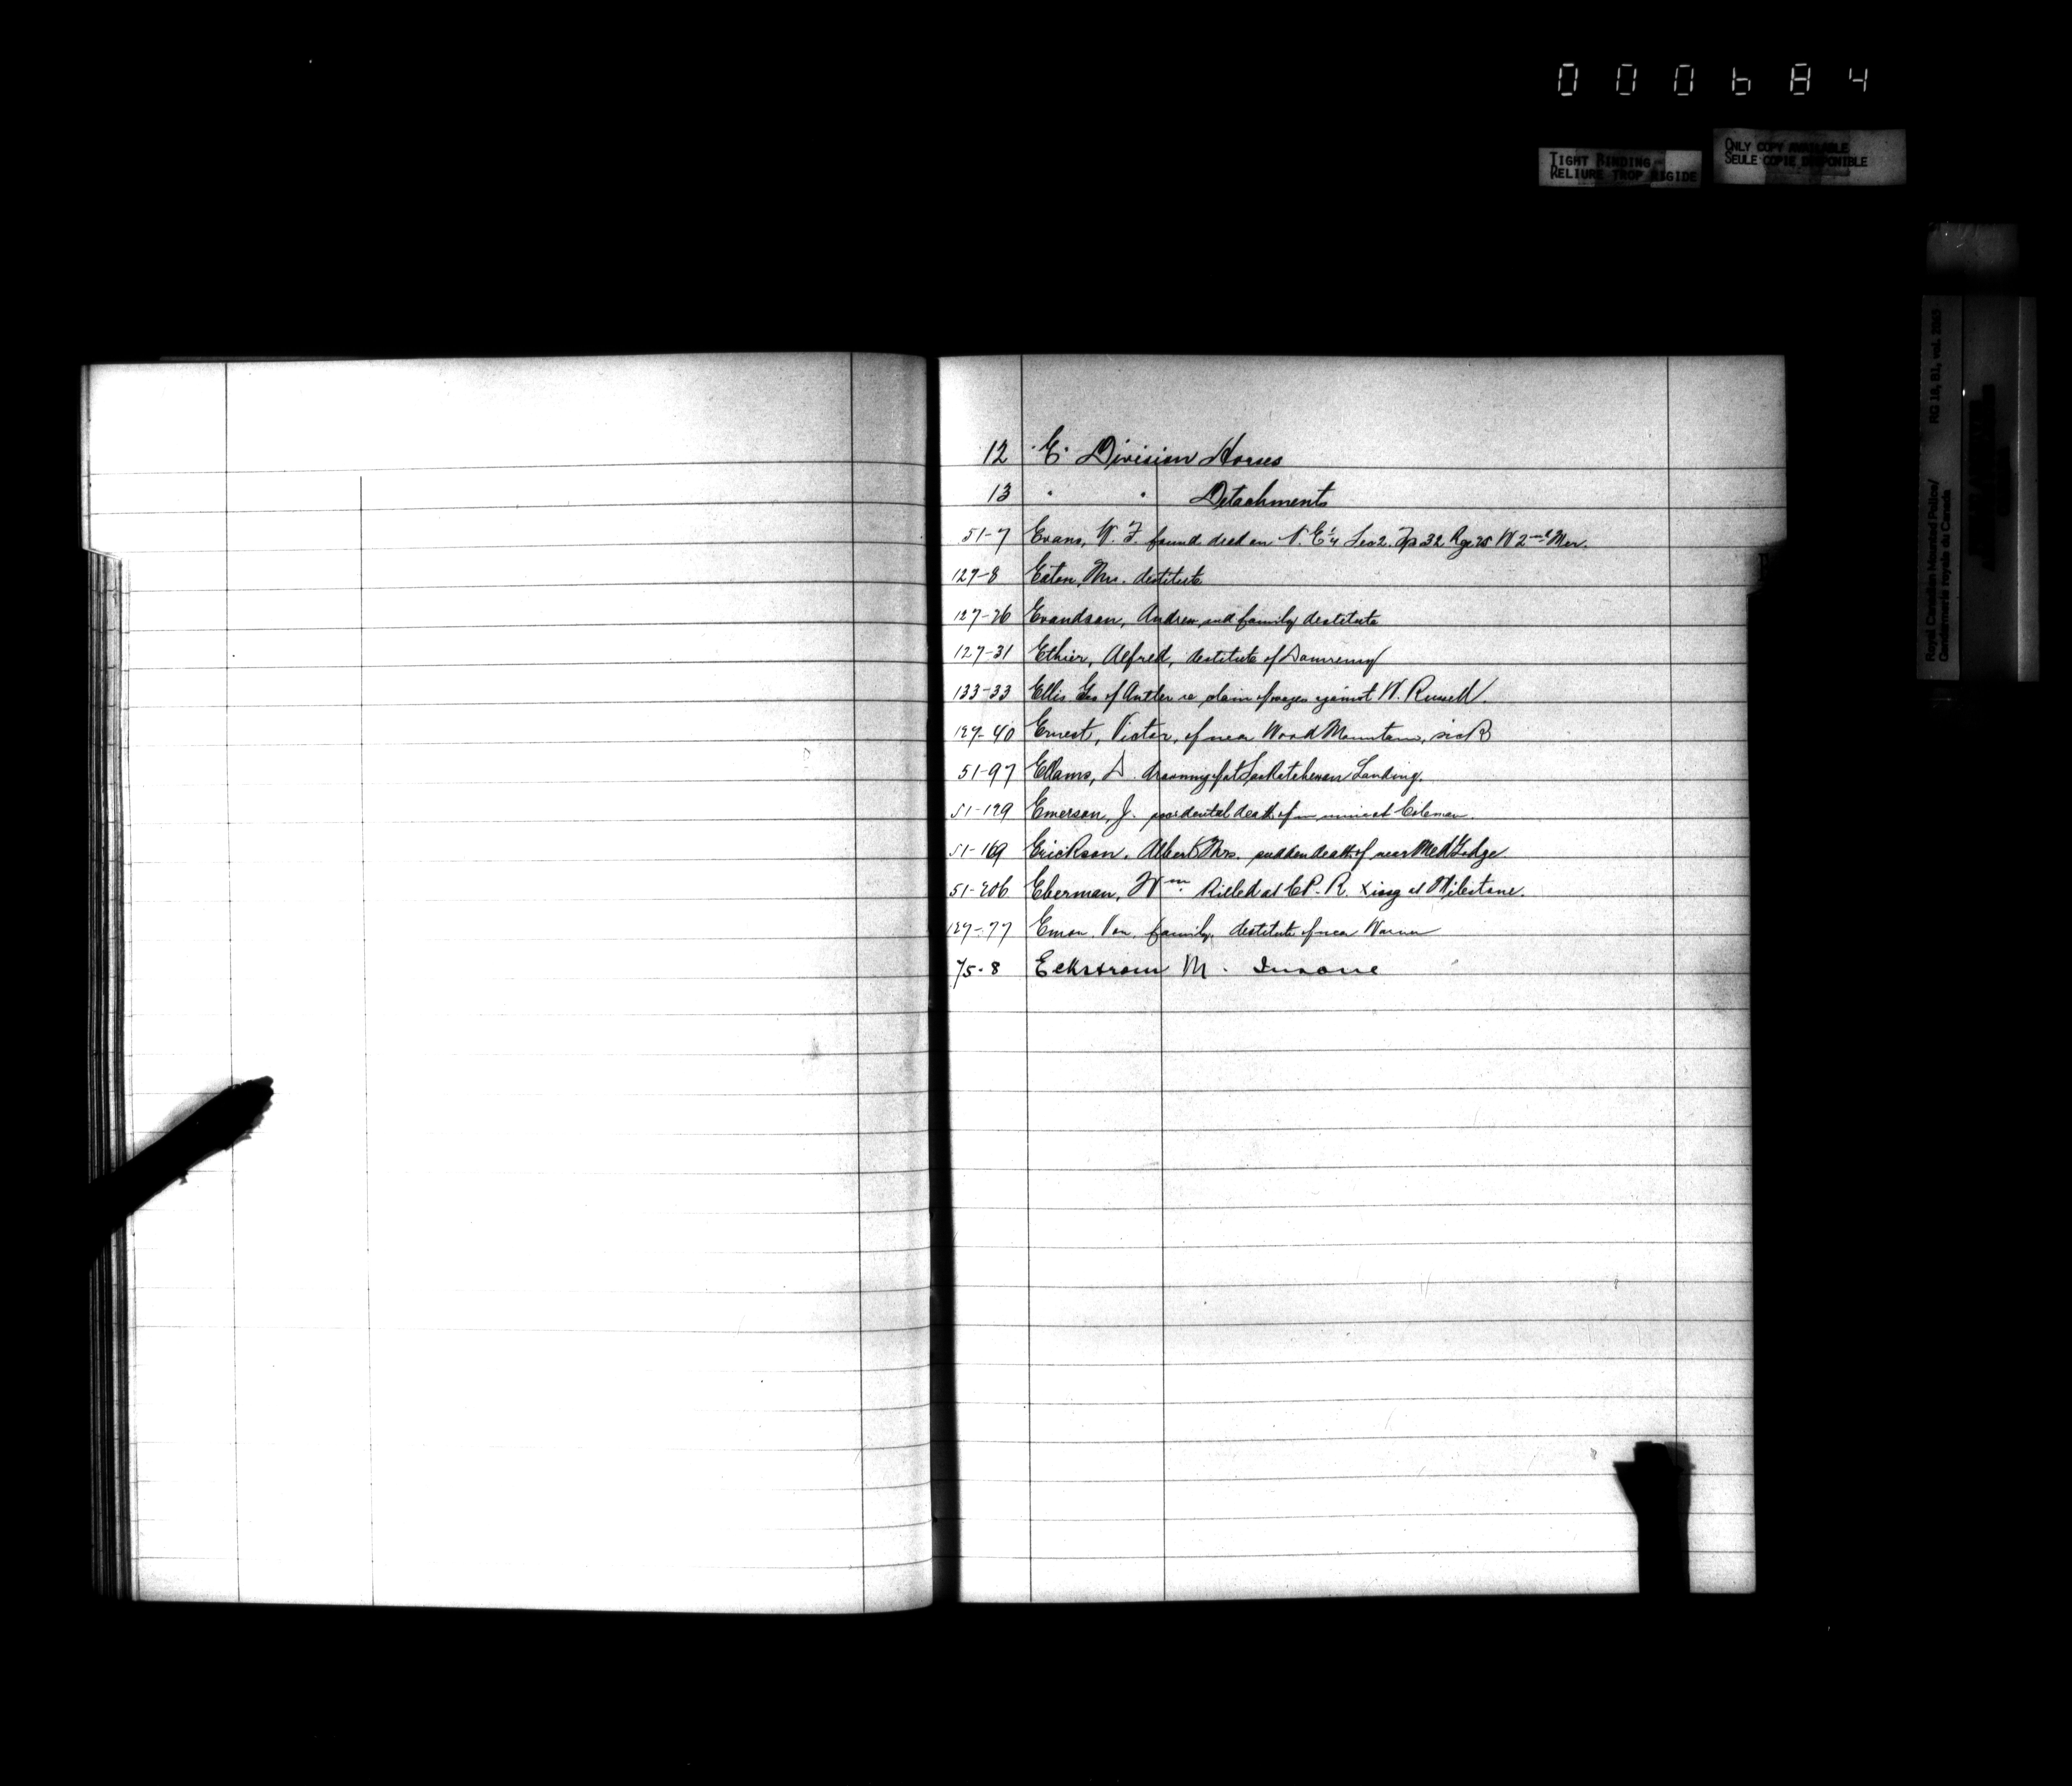 000684
TIGHT BINDING
RELIURE TROP RIGIDE
ONLY COPY AVAILABLE
SEULE COPIE DISPONIBLE
Royal Canadian Mounted Police/ RG 18, B1, vol.
Gendarmerie royale du Canada
12 "E" Division Horses
13 " " Detachments
51-7 Evans, W. F. found dead on N. E 1/4 Sec 2. Tp 32 Rge 25 W 2nd Mer.
127-8 Eaton, Mrs. destitute
127-26 Evandson, Andrew and family destitute
127-31 Ethier, Alfred, destitute of Domremy
133-33 Ellis Geo of Antler re claim of wages against W. Russell.
127-40 Ernest, Victor, of near Wood Mountain, sick
51-97 Ellams, D. drowning of at Saskatchewan Landing.
51-129 Emerson, J. accidental death of in mine at Coleman.
51-169 Erickson, Albert Mrs. sudden death of near Med Lodge
51-206 Eberman, Wm. Killed at C.P.R. Xing at Milestone.
127-77 Emon, Von, family, destitute of near Warner
75-8 Eckstrom M. Insane